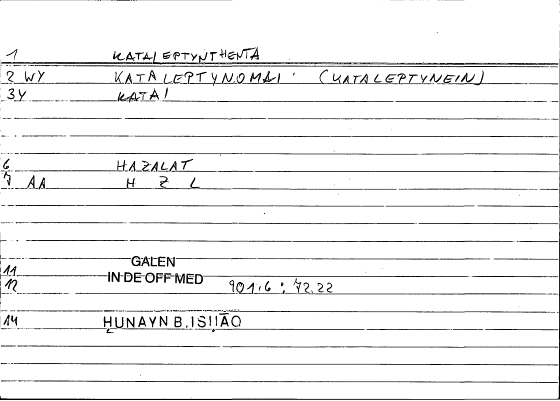 1 KATALEPTYNTHENTA
2 WY KATALEPTYNOMAI (KATALEPTYNEIN)
3Y KATAI
6 HAZALAT
7 AA H Z L
GALEN
11 IN DE OFF MED
12 901.6 : 72.22
14 ḤUNAYN B. ISḤĀQ